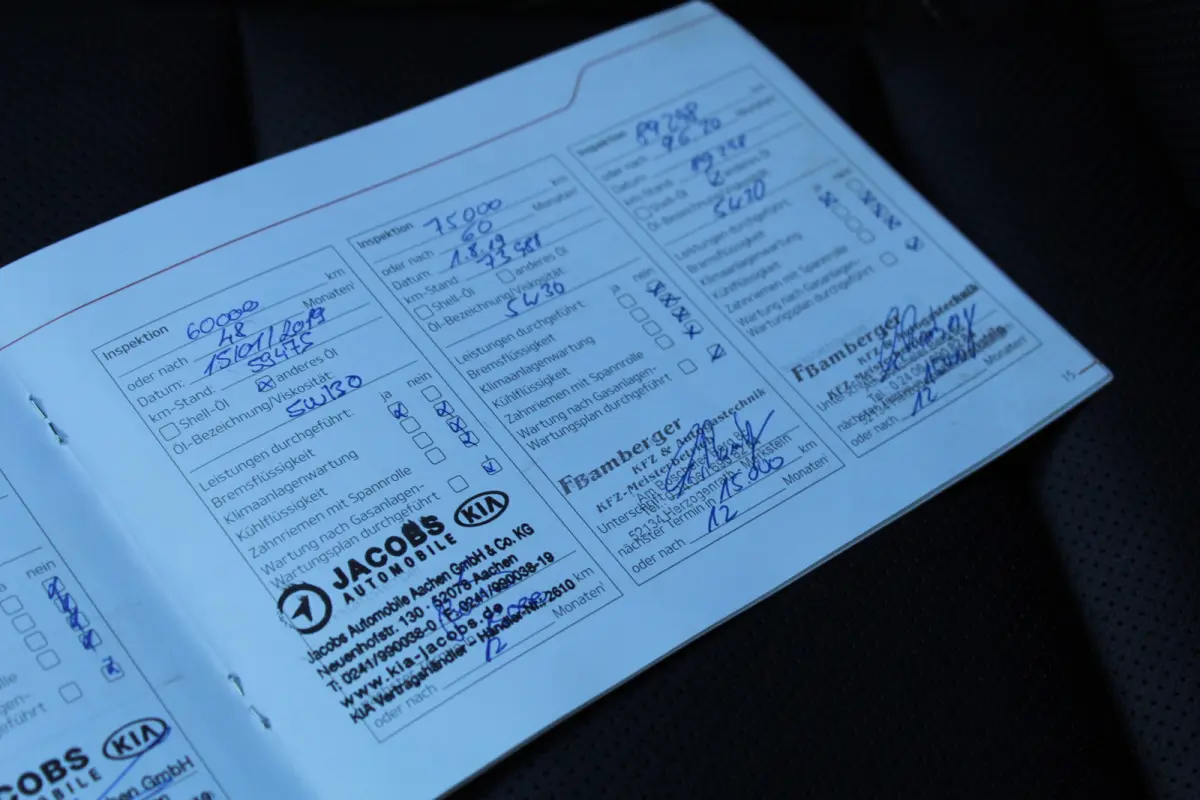 Inspektion 60000 km
oder nach 48 Monaten¹
Datum: 15/01/2019
km-Stand: 59475
Shell-Öl anderes Öl
Öl-Bezeichnung/Viskosität:
5W30
Leistungen durchgeführt: ja nein
Bremsflüssigkeit
Klimaanlagenwartung
Kühlflüssigkeit
Zahnriemen mit Spannrolle
Wartung nach Gasanlagen-
Wartungsplan durchgeführt
JACOBS KIA
AUTOMOBILE
Jacobs Automobile Aachen GmbH & Co. KG
Neuenhofstr. 130 · 52078 Aachen
T: 0241/990038-0 / F: 0241/990038-19
www.kia-jacobs.de
KIA Vertragshändler - Händler-Nr.: 2610
km
oder nach 12 Monaten¹
Inspektion 75000 km
oder nach 60 Monaten¹
Datum: 1.8.19
km-Stand
Shell-Öl anderes Öl
Öl-Bezeichnung/Viskosität:
5W30
Leistungen durchgeführt: ja nein
Bremsflüssigkeit
Klimaanlagenwartung
Kühlflüssigkeit
Zahnriemen mit Spannrolle
Wartung nach Gasanlagen-
Wartungsplan durchgeführt
FBamberger
KFZ & Autogastechnik
KFZ-Meisterbetrieb
52134 Herzogenrath
nächster Termin in 15.000 km
oder nach 12 Monaten¹
Inspektion 89298 km
oder nach
Datum
km-Stand
Shell-Öl anderes Öl
5W30
Leistungen durchgeführt: ja nein
Bremsflüssigkeit
Klimaanlagenwartung
Kühlflüssigkeit
Zahnriemen mit Spannrolle
Wartung nach Gasanlagen-
Wartungsplan durchgeführt
FBamberger
oder nach 12 Monaten¹
15
nein
führt
COBS KIA